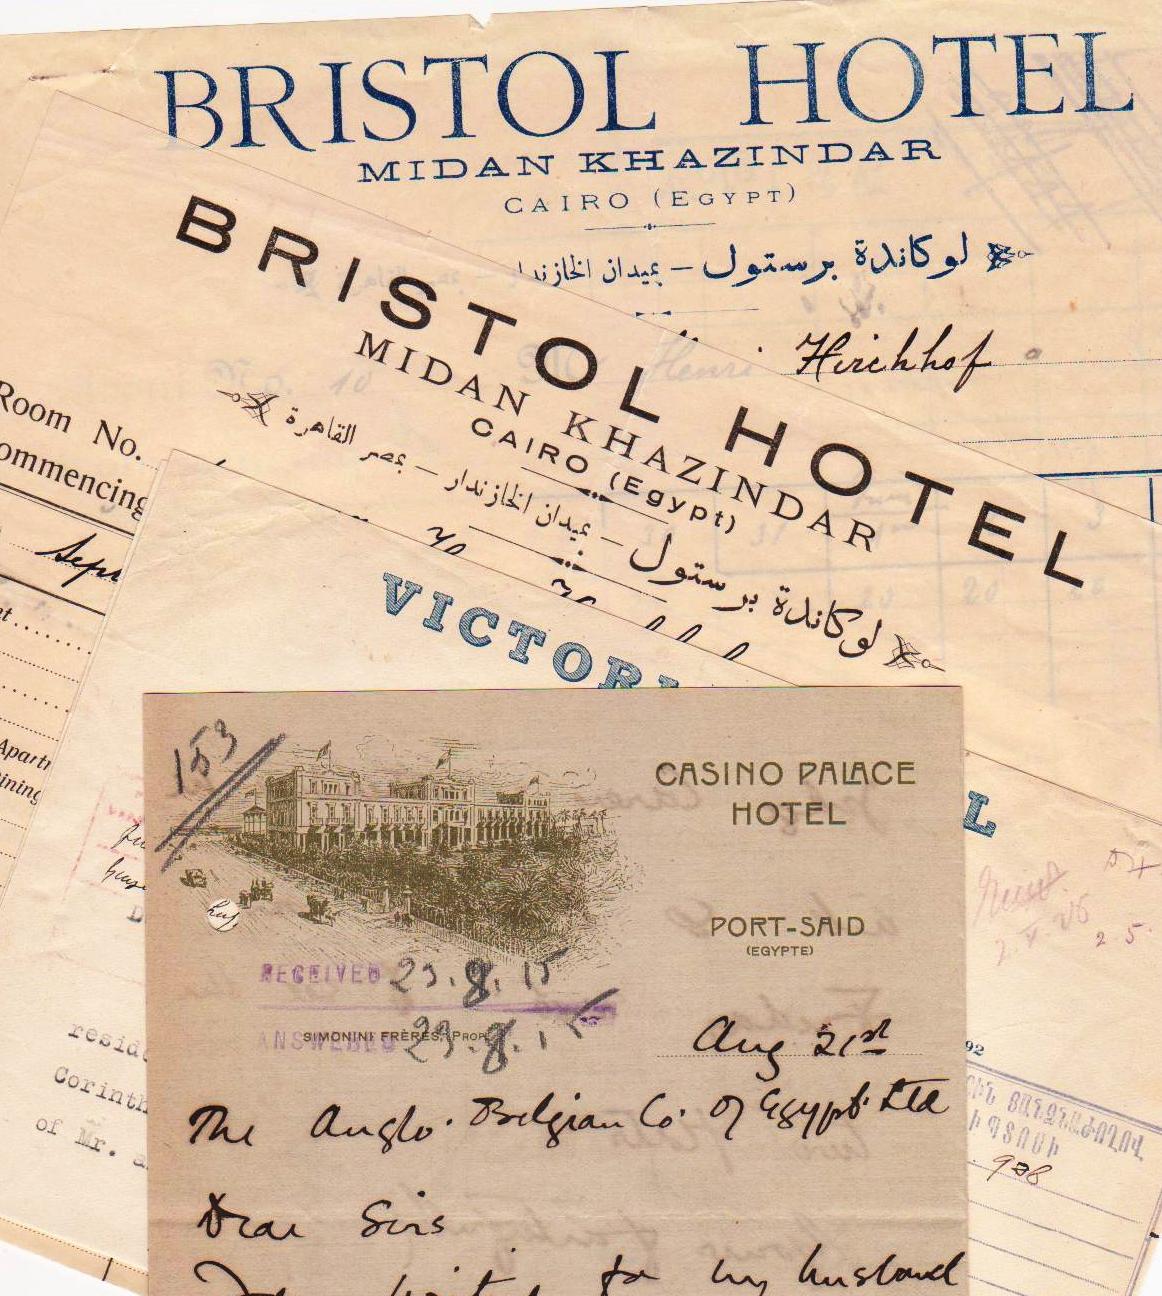 BRISTOL HOTEL
MIDAN KHAZINDAR
CAIRO (EGYPT)
لوكاندة برستول — بميدان الخازندار
Hirchhof
BRISTOL HOTEL
MIDAN KHAZINDAR
CAIRO (Egypt)
لوكاندة برستول — بميدان الخازندار — بمصر القاهرة
Room No.
ommencing
Sept
VICTORI
L
Apart
ining
153
CASINO PALACE
HOTEL
PORT-SAID
(EGYPTE)
RECEIVED 23.8.15
SIMONINI FRÈRES, PROP
ANSWERED 23.8.15
Aug 21st
The Anglo-Belgian Co. of Egypt Ltd
Dear Sirs
to my husband
2.5.
resid
Corinth
of Mr. a
92
908